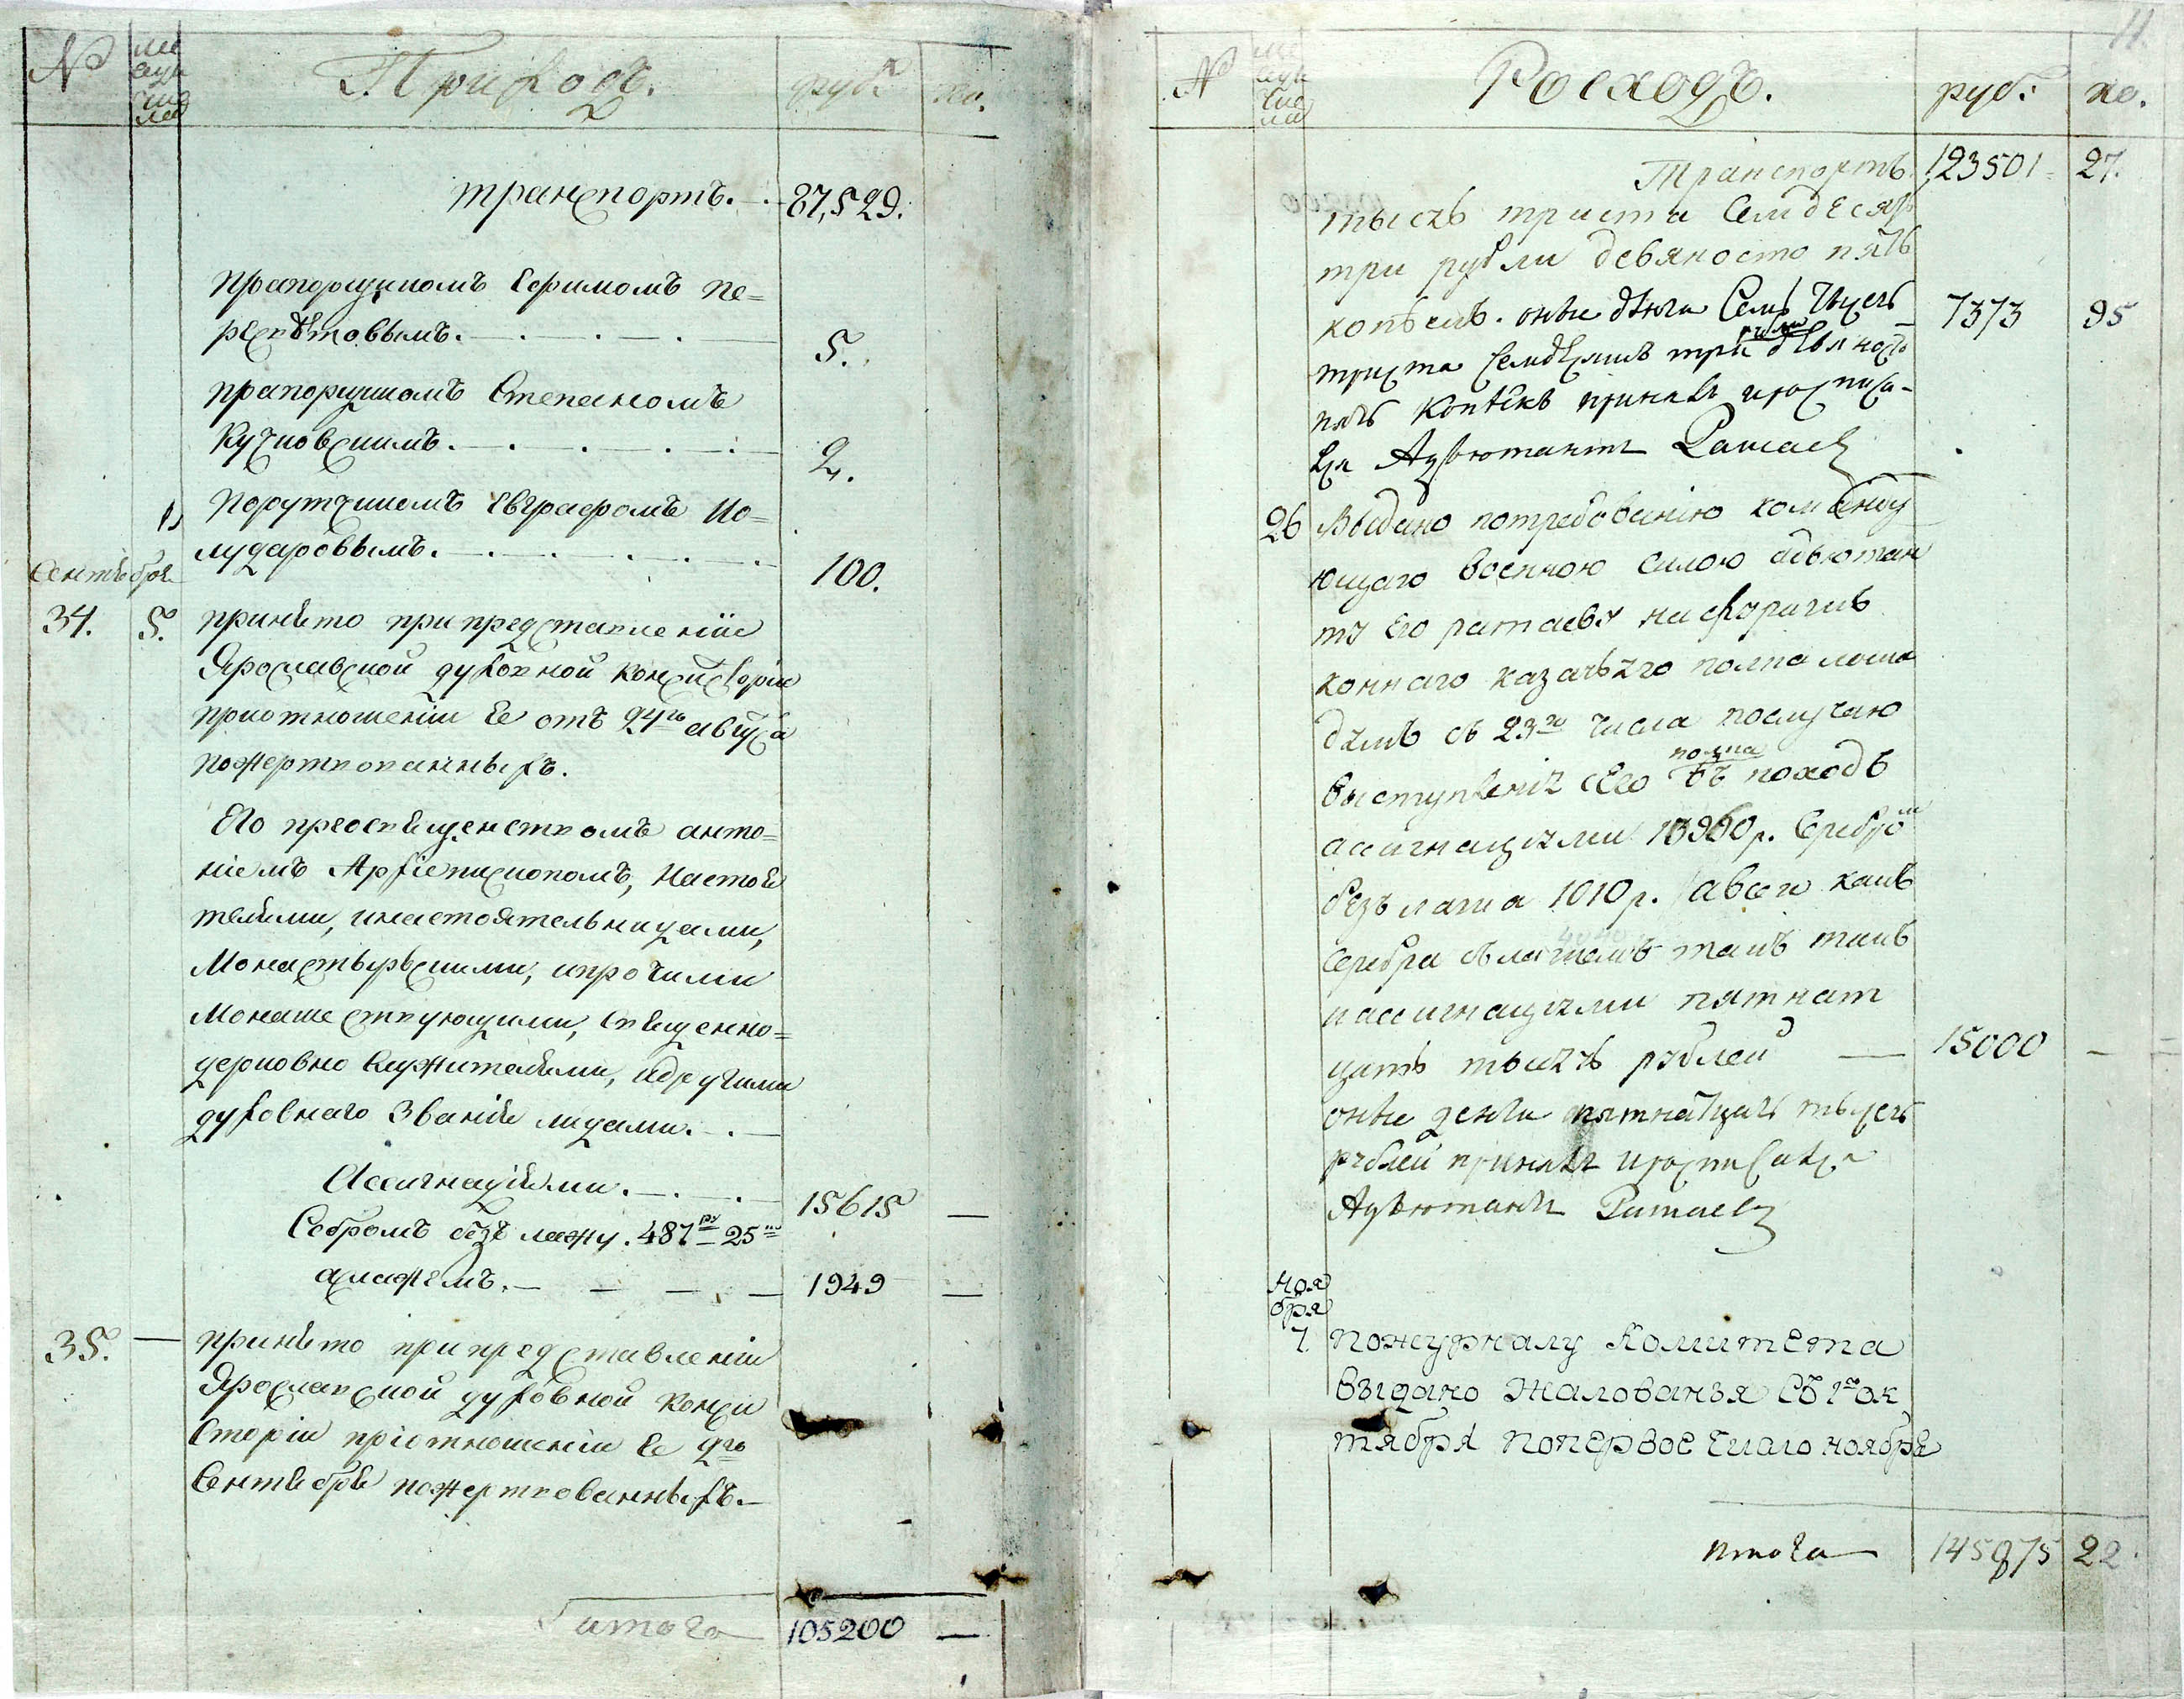 №
ме
сяцъ
чис
ла
Приходъ.
руб.
ко.
транспортъ. 87,529.
прапорщикомъ Ефимомъ Пе=
рескѣтовымъ. 5.
прапорщикомъ Степаномъ
Кучковскимъ. 2.
Порутчикомъ Евграфомъ
лударовымъ. 100.
Сентября
34. 5. принято при представленіи
Ярославской духовной консисторіи
приотношеніи Ее отъ 24го августа
пожертвованныхъ.
Его преосвященствомъ анто=
ніемъ Архіепископомъ, настоя
телями, инастоятельницами,
Монастырскими, ипрочими
Монашествующими, священно=
церковно служителями, идругими
духовнаго Званія лицами.
Ассигнаціями. 15615 —
Себромъ безъ лажу. 487 ру 25 к
аслажемъ. 1949 —
35. — принято при представленіи
Ярославской духовной Конси
сторіи приотношеніи Ее 2го
Сентября пожертвованныхъ.
итого 105200 —
11.
№
ме
сяцъ
чис
ла
Росходъ.
руб.
ко.
Транспортъ 123501 27.
тысячь триста Семдесятъ
три рубли девяносто пять
копѣекъ. онѣе дѣнги Семь тысечь 7373 95
рубли
триста Семдесятъ три девяносто
пять Копѣекъ принялъ ирасписа-
лся Адъютантъ Ратаевъ
26 Выдано потребованію команду
ющаго военною силою адьютан
ту Его ратаеву нафуражъ
коннаго казачьяго полка лоша
дямъ съ 23го числа послучаю
полка
выступленія сего въ походъ
ассигнаціями 10960 р. Серебромъ
безъ лажа 1010 р. авсего какъ
серебра съ лажемъ такъ
иассигнаціями пятнат
цать тысячь рублей — 15000 —
онѣе денги пятнатцать тысечь
рублей принялъ ирасписался
Адъютантъ Ратаевъ
Ноя
бря
7. пожурналу Комитета
выдано Жалованья Съ 1го ок
тября поперьвое число ноября
итого 145875 22.